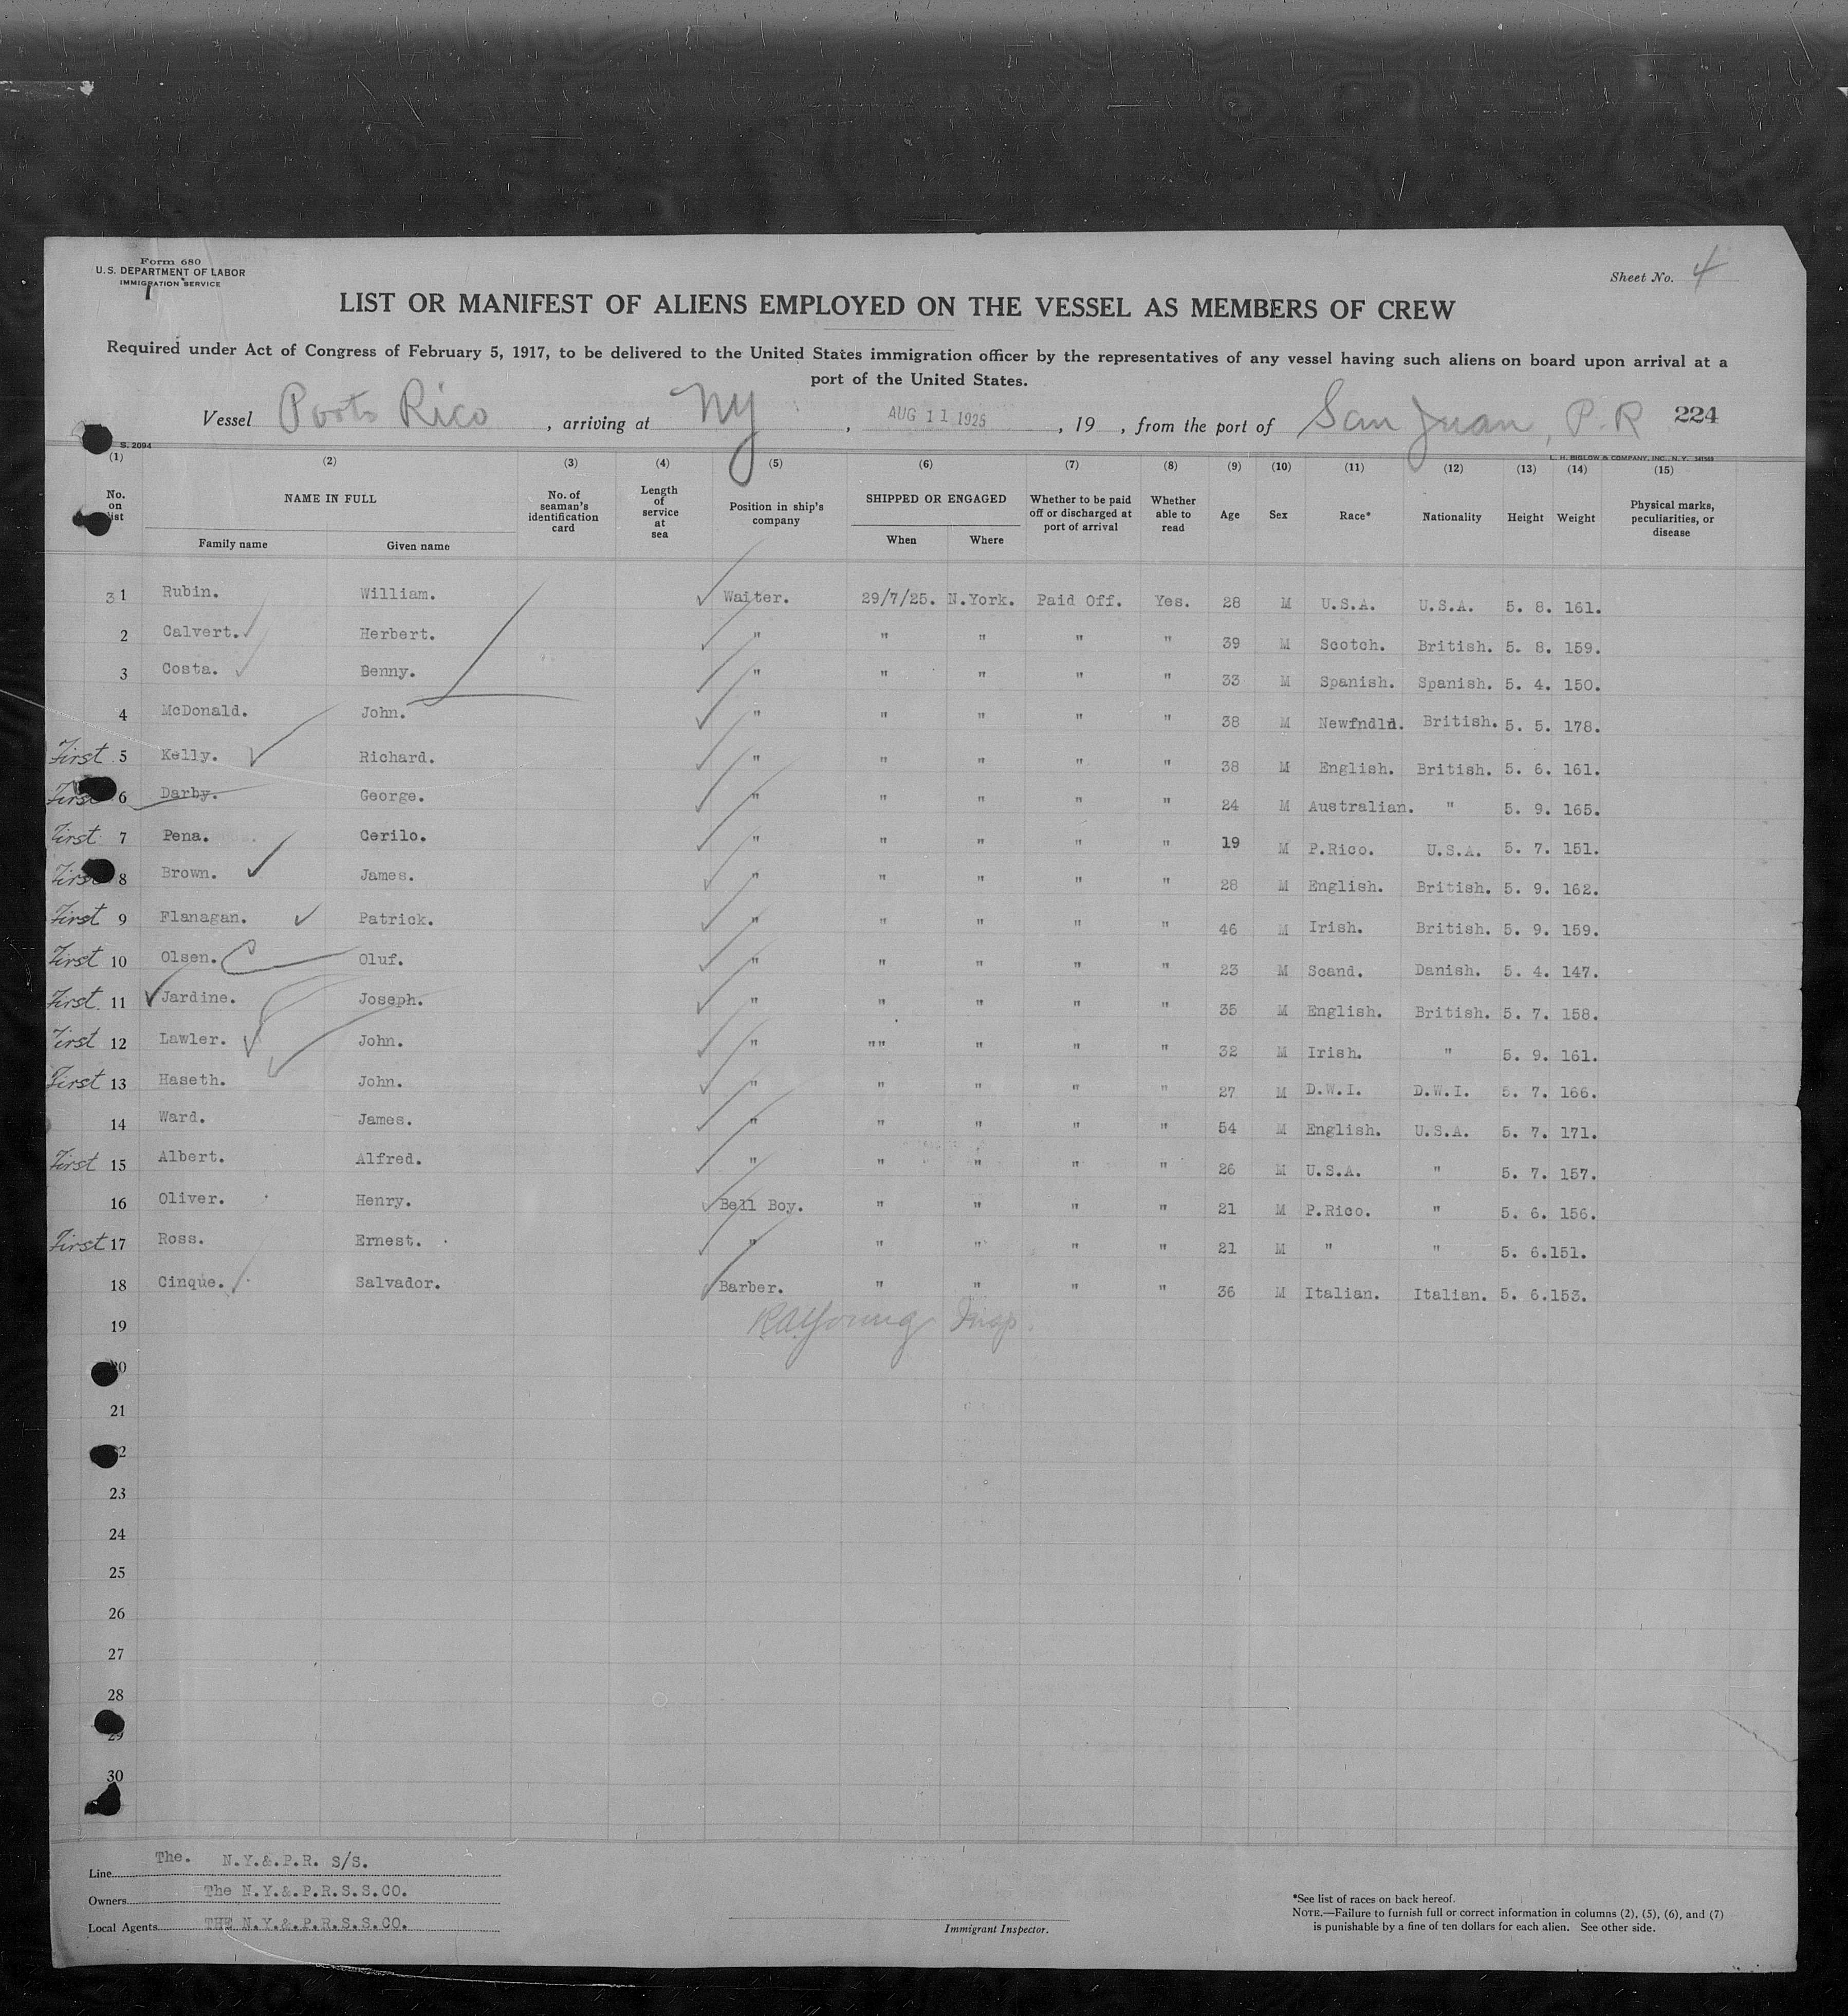 Form 680
U.S. DEPARTMENT OF LABOR
IMMIGRATION SERVICE
Sheet No. 4
LIST OR MANIFEST OF ALIENS EMPLOYED ON THE VESSEL AS MEMBERS OF CREW
Required under Act of Congress of February 5, 1917, to be delivered to the United States immigration officer by the representatives of any vessel having such aliens on board upon arrival at a
port of the United States.
Vessel Porto Rico, arriving at NY, AUG 11 1925, 19 , from the port of San Juan, P.R 224
S. 2094
L. H. BIGLOW & COMPANY, INC., N. Y.
(1) (2) (3) (4) (5) (6) (7) (8) (9) (10) (11) (12) (13) (14) (15)
No. on list NAME IN FULL Family name Given name No. of seaman's identification card Length of service at sea Position in ship's company SHIPPED OR ENGAGED When Where Whether to be paid off or discharged at port of arrival Whether able to read Age Sex Race* Nationality Height Weight Physical marks, peculiarities, or disease
31 Rubin. William. Waiter. 29/7/25. N.York. Paid Off. Yes. 28 M U.S.A. U.S.A. 5. 8. 161.
2 Calvert. Herbert. " " " " " 39 M Scotch. British. 5. 8. 159.
3 Costa. Benny. " " " " " 33 M Spanish. Spanish. 5. 4. 150.
4 McDonald. John. " " " " " 38 M Newfndld. British. 5. 5. 178.
First 5 Kelly. Richard. " " " " " 38 M English. British. 5. 6. 161.
First 6 Darby. George. " " " " " 24 M Australian. " 5. 9. 165.
First 7 Pena. Cerilo. " " " " " 19 M P.Rico. U.S.A. 5. 7. 151.
First 8 Brown. James. " " " " " 28 M English. British. 5. 9. 162.
First 9 Flanagan. Patrick. " " " " " 46 M Irish. British. 5. 9. 159.
First 10 Olsen. Oluf. " " " " " 23 M Scand. Danish. 5. 4. 147.
First. 11 Jardine. Joseph. " " " " " 35 M English. British. 5. 7. 158.
First 12 Lawler. John. " "" " " " 32 M Irish. " 5. 9. 161.
First 13 Haseth. John. " " " " " 27 M D.W.I. D.W.I. 5. 7. 166.
14 Ward. James. " " " " " 54 M English. U.S.A. 5. 7. 171.
First 15 Albert. Alfred. " " " " " 26 M U.S.A. " 5. 7. 157.
16 Oliver. Henry. Bell Boy. " " " " 21 M P.Rico. " 5. 6. 156.
First 17 Ross. Ernest. " " " " " 21 M " " 5. 6.151.
18 Cinque. Salvador. Barber. " " " " 36 M Italian. Italian. 5. 6.153.
19 R.A.Young Insp.
20
21
22
23
24
25
26
27
28
29
30
Line The. N.Y.&.P.R. S/S.
Owners The N.Y.&.P.R.S.S.CO.
Local Agents THE N.Y.&.P.R.S.S.CO.
Immigrant Inspector.
*See list of races on back hereof.
NOTE.—Failure to furnish full or correct information in columns (2), (5), (6), and (7)
is punishable by a fine of ten dollars for each alien. See other side.